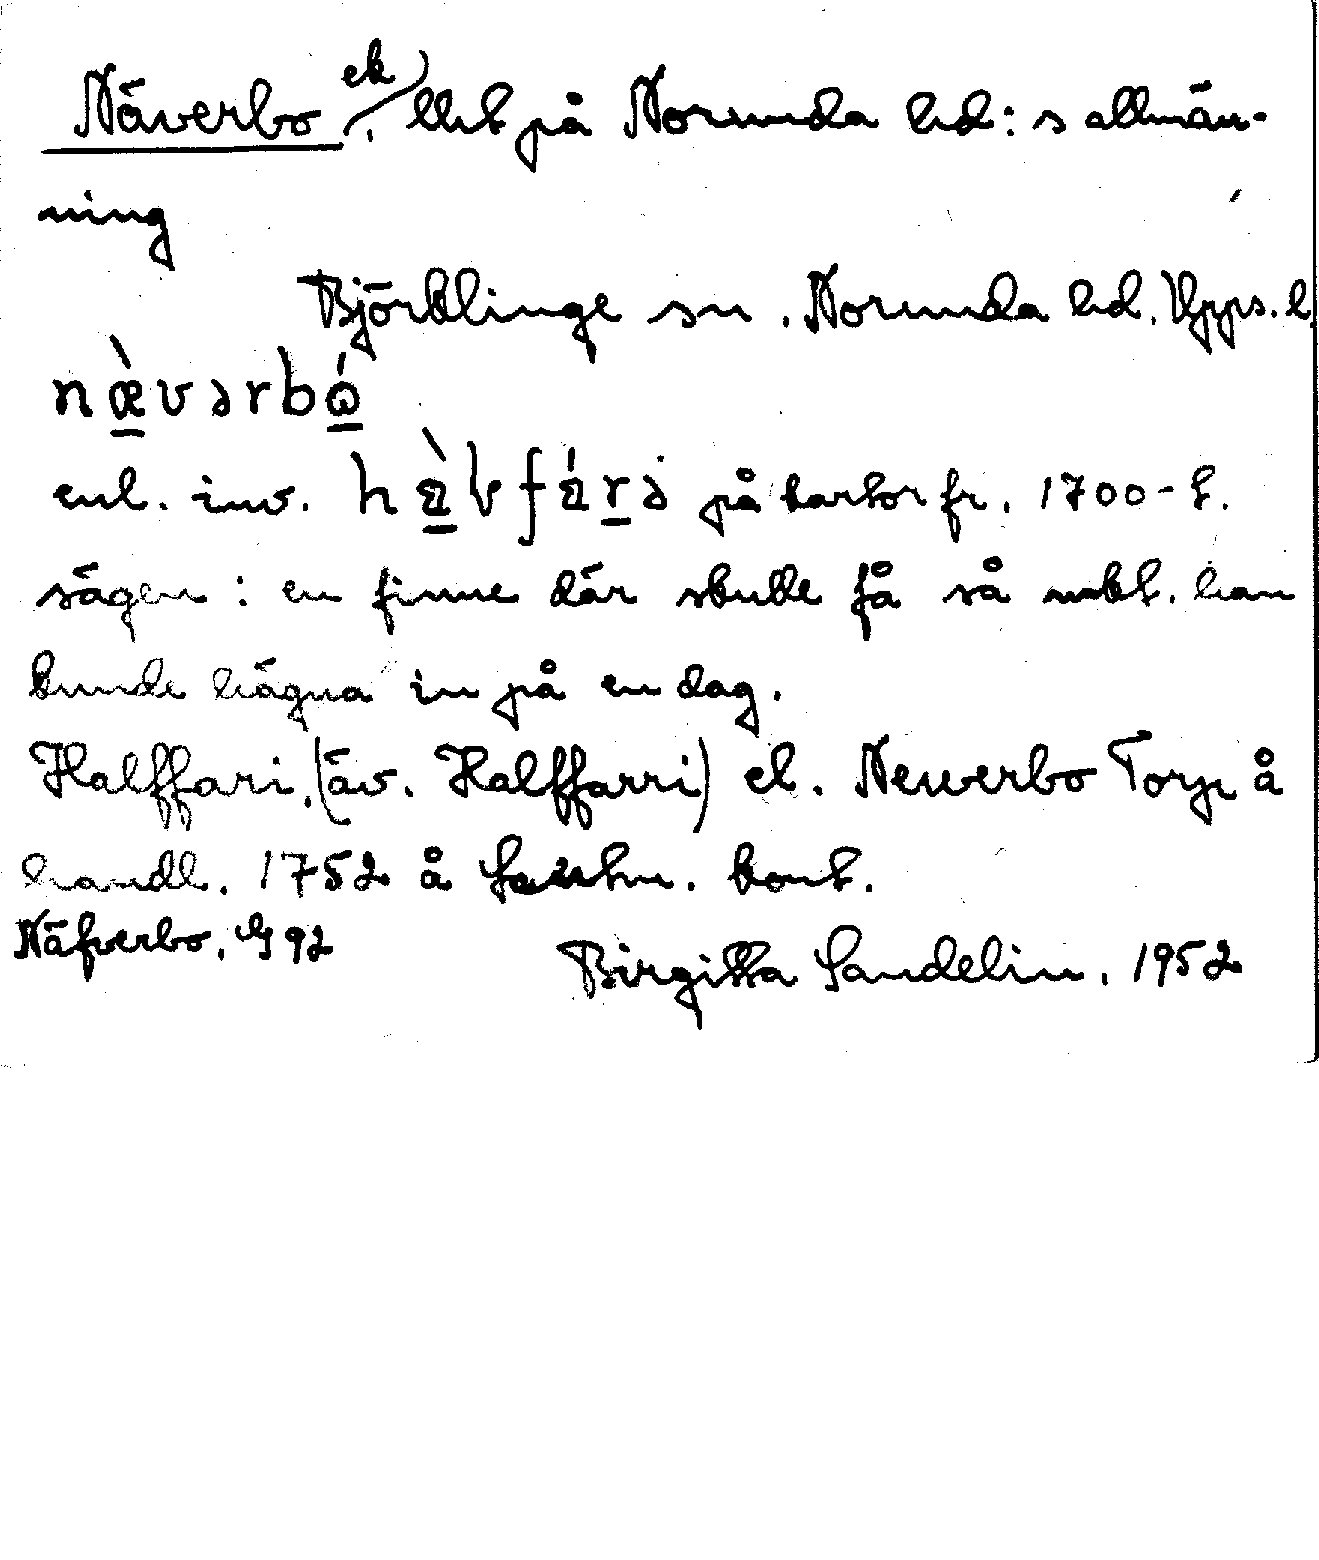 Näverbo, ek) lht på Norunda hd:s allmän-
ning
Björklinge sn. Norunda hd. Upps. l.
næ̀vərbó
enl. inv. hàlfárə på kartor fr. 1700-t.
sägen: en finne där skulle få så mkt. han
kunde hägna in på en dag.
Halffari, (äv. Halffarri) el. Newerbo Torp å
handl. 1752 å kont.
Näfverbo, G 92
Birgitta Sandelin, 1952